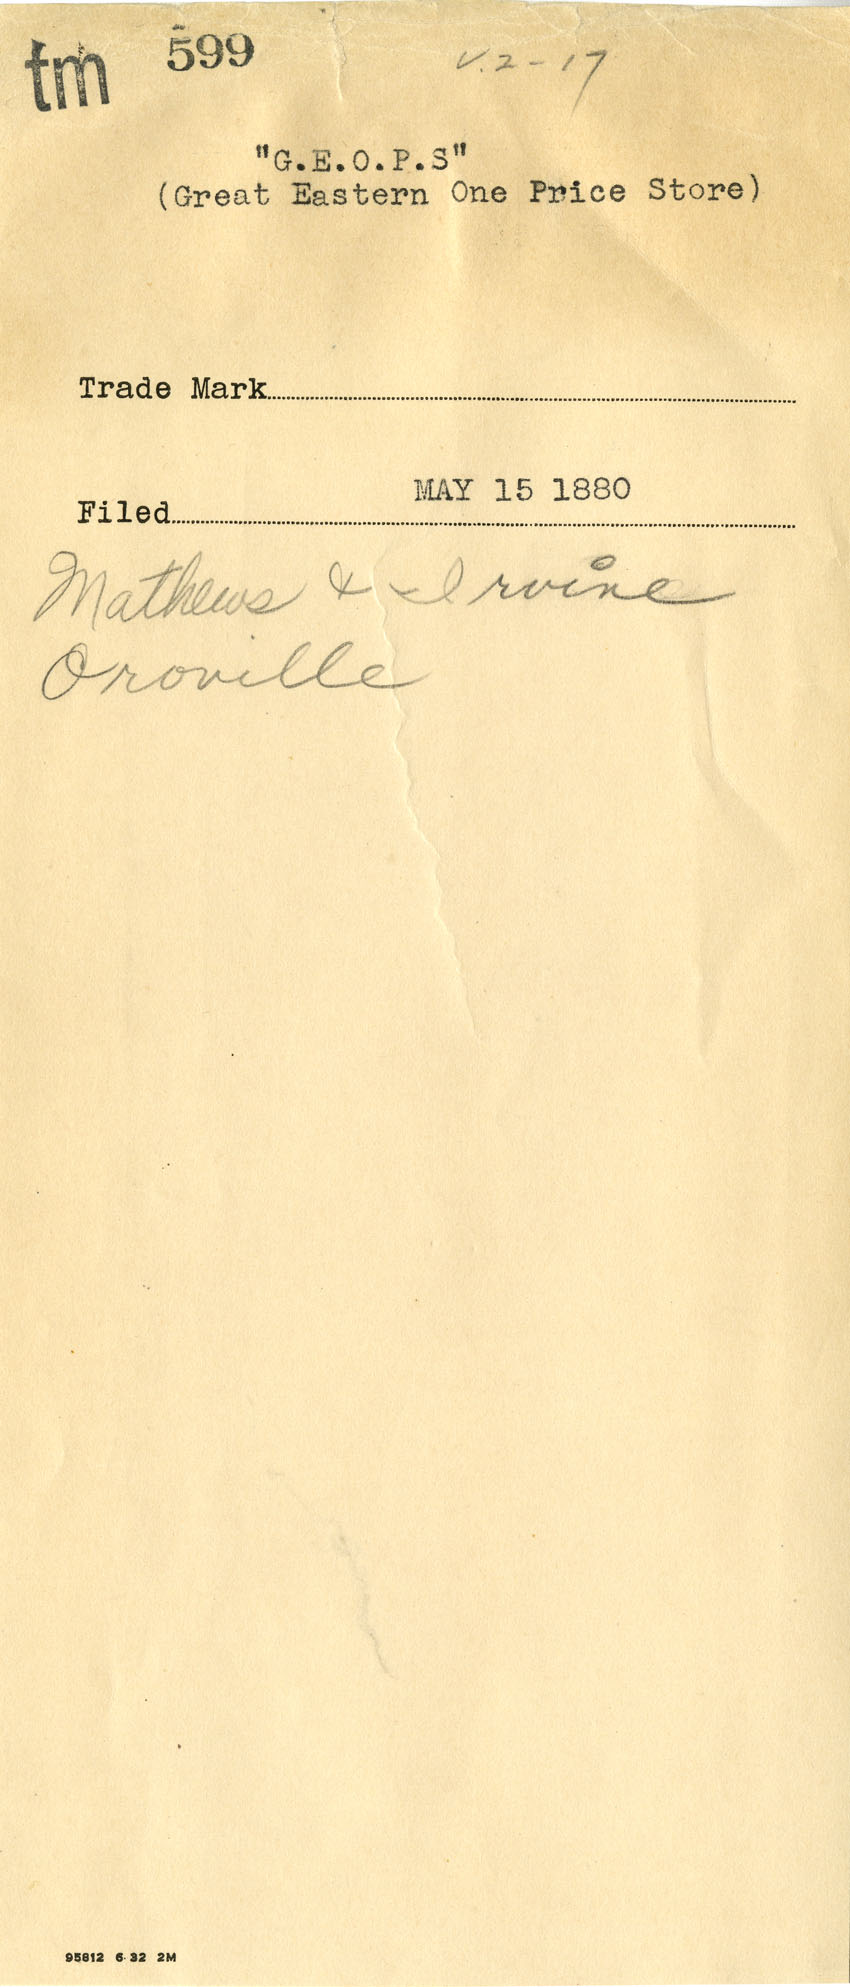 tm 599 V.2-17
"G.E.O.P.S"
(Great Eastern One Price Store)
Trade Mark
MAY 15 1880
Filed
Mathews & Irvine
Oroville
95812 6-32 2M